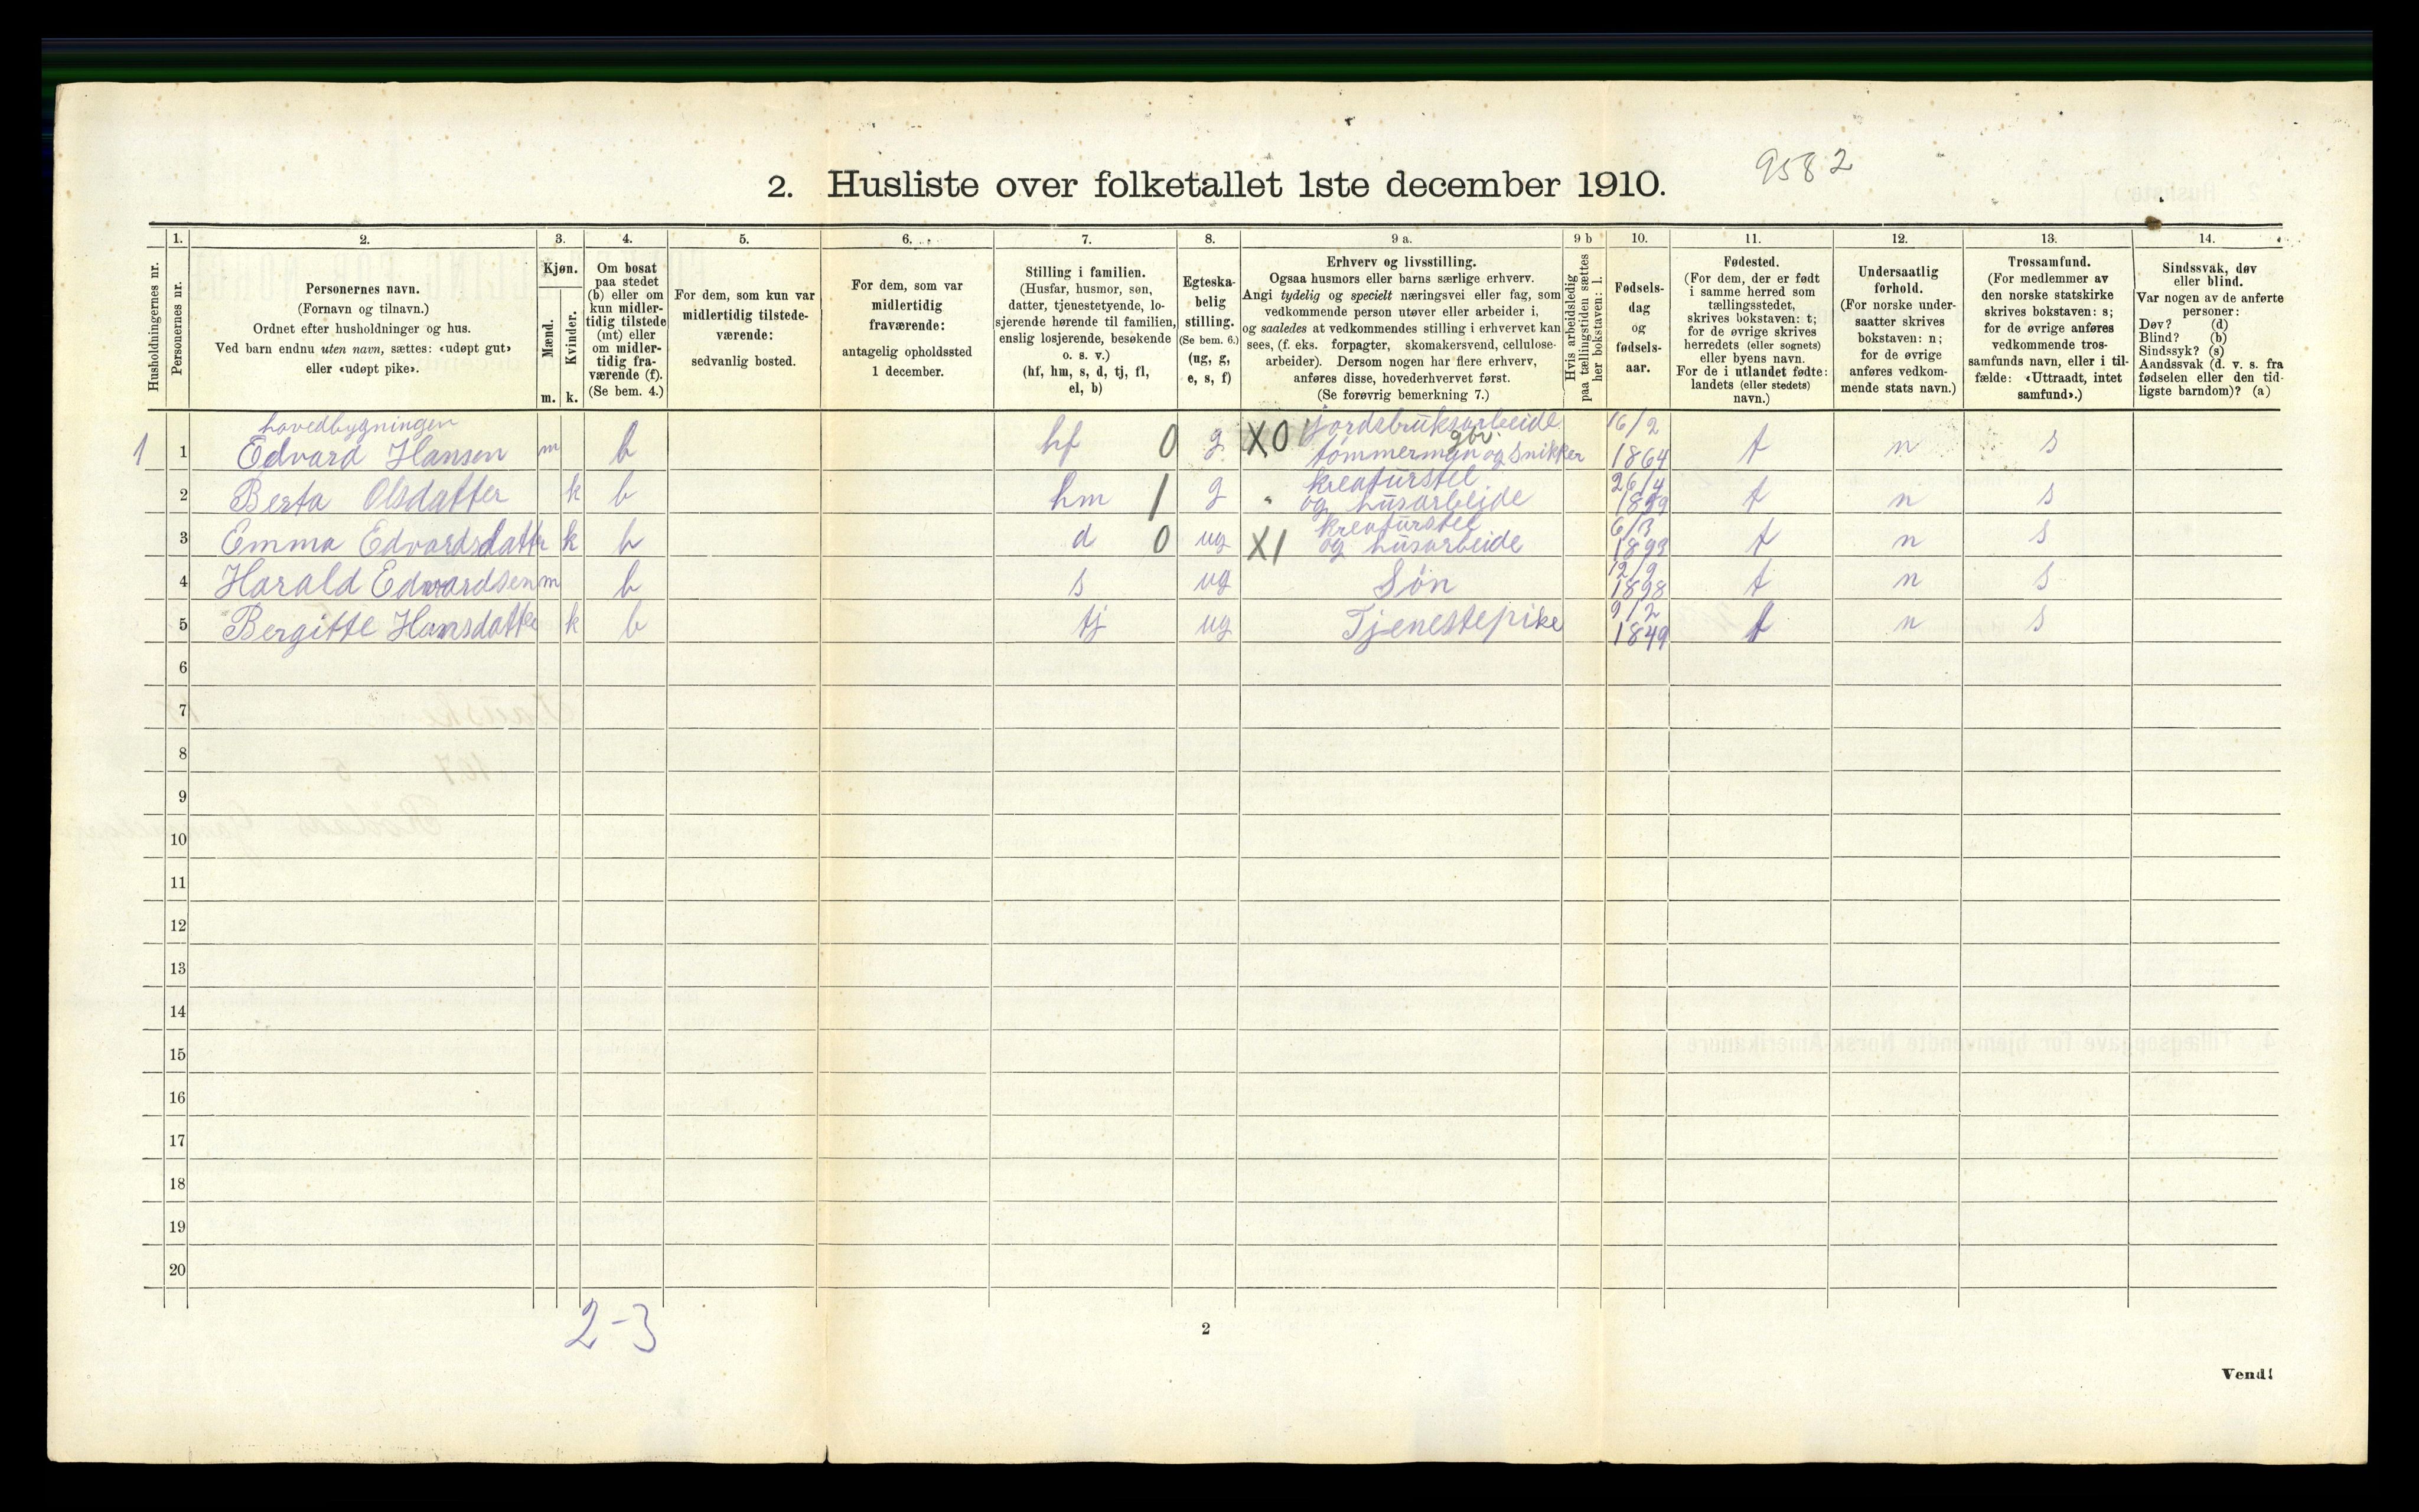 9582
2. Husliste over folketallet 1ste december 1910.
Husholdningernes nr.
1.
Personernes nr.
2.
Personernes navn.
(Fornavn og tilnavn.)
Ordnet efter husholdninger og hus.
Ved barn endnu uten navn, sættes: «udøpt gut»
eller «udøpt pike».
3.
Kjøn.
Mænd.
Kvinder.
m. k.
4.
Om bosat
paa stedet
(b) eller om
kun midler-
tidig tilstede
(mt) eller
om midler-
tidig fra-
værende (f).
(Se bem. 4.)
5.
For dem, som kun var
midlertidig tilstede-
værende:
sedvanlig bosted.
6.
For dem, som var
midlertidig
fraværende:
antagelig opholdssted
1 december.
7.
Stilling i familien.
(Husfar, husmor, søn,
datter, tjenestetyende, lo-
sjerende hørende til familien,
enslig losjerende, besøkende
o. s. v.)
(hf, hm, s, d, tj, fl,
el, b)
8.
Egteska-
belig
stilling.
(Se bem. 6.)
(ug, g,
e, s, f)
9 a.
Erhverv og livsstilling.
Ogsaa husmors eller barns særlige erhverv.
Angi tydelig og specielt næringsvei eller fag, som
vedkommende person utøver eller arbeider i,
og saaledes at vedkommendes stilling i erhvervet kan
sees, (f. eks. forpagter, skomakersvend, cellulose-
arbeider). Dersom nogen har flere erhverv,
anføres disse, hovederhvervet først.
(Se forøvrig bemerkning 7.)
9 b
Hvis arbeidsledig
paa tællingstiden sættes
her bokstaven: l.
10.
Fødsels-
dag
og
fødsels-
aar.
11.
Fødested.
(For dem, der er født
i samme herred som
tællingsstedet,
skrives bokstaven: t;
for de øvrige skrives
herredets (eller sognets)
eller byens navn.
For de i utlandet fødte:
landets (eller stedets)
navn.)
12.
Undersaatlig
forhold.
(For norske under-
saatter skrives
bokstaven: n;
for de øvrige
anføres vedkom-
mende stats navn.)
13.
Trossamfund.
(For medlemmer av
den norske statskirke
skrives bokstaven: s;
for de øvrige anføres
vedkommende tros-
samfunds navn, eller i til-
fælde: «Uttraadt, intet
samfund».)
14.
Sindssvak, døv
eller blind.
Var nogen av de anførte
personer:
Døv? (d)
Blind? (b)
Sindssyk? (s)
Aandssvak (d. v. s. fra
fødselen eller den tid-
ligste barndom)? (a)
hovedbygningen jordsbruksarbeide 16/2
1 1 Edvard Hansen m b hf 0 g X0 gbr. tømmerman og snikker 1864 t n s
kreaturstel 26/4
2 Berta Olsdatter k b hm 1 g " og husarbeide 1859 t n s
kreaturstel 6/3
3 Emma Edvardsdatter k b d 0 ug X1 og husarbeide 1893 t n s
12/9
4 Harald Edvardsen m b s ug Søn 1898 t n s
9/2
5 Bergitte Hansdatter k b tj ug Tjenestepike 1849 t n s
6
7
8
9
10
11
12
13
14
15
16
17
18
19
20
2-3
2
Vend!